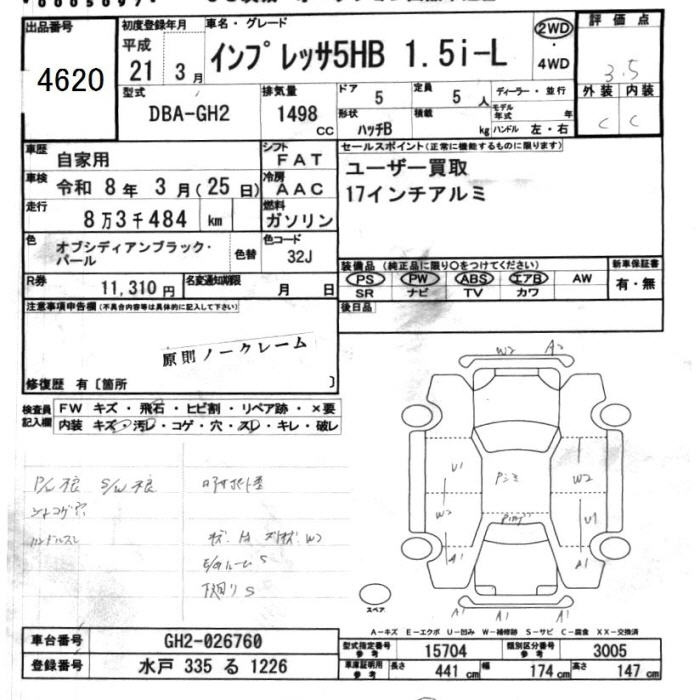 出品番号
4620
初度登録年月
平成
21 3 月
車名・グレード
インプレッサ5HB 1.5i-L
2WD
4WD
評価点
3.5
型式
DBA-GH2
排気量
1498 CC
ドア
5
定員
5 人
ディーラー・並行
モデル年式 年
形状
ハッチB
積載
kg
ハンドル 左・右
外装 内装
C C
車歴
自家用
シフト
FAT
車検
令和 8 年 3 月(25 日)
冷房
AAC
走行
8万3千484 km
燃料
ガソリン
色
オブシディアンブラック・パール
色替
色コード
32J
R券
11,310 円
名変通知期限
月 日
セールスポイント(正常に機能するものに限ります)
ユーザー買取
17インチアルミ
装備品(純正品に限り○をつけてください)
PS PW ABS エアB AW
SR ナビ TV カワ
新車保証書
有・無
後日品
注意事項申告欄(不具合内容等は具体的に記入して下さい)
原則ノークレーム
修復歴 有〔箇所 〕
検査員記入欄
FW キズ・飛石・ヒビ割・リペア跡・×要
内装 キズ・汚レ・コゲ・穴・スレ・キレ・破レ
W2 A2
U1
Pシミ
W2
W2
U1
A1
A1
A1 A1 A1
スペア
A-キズ E-エクボ U-凹み W-補修跡 S-サビ C-腐食 XX-交換済
車台番号
GH2-026760
登録番号
水戸 335 る 1226
型式指定番号 参考
15704
類別区分番号 参考
3005
車庫証明用 参考
長さ 441 cm
幅 174 cm
高さ 147 cm